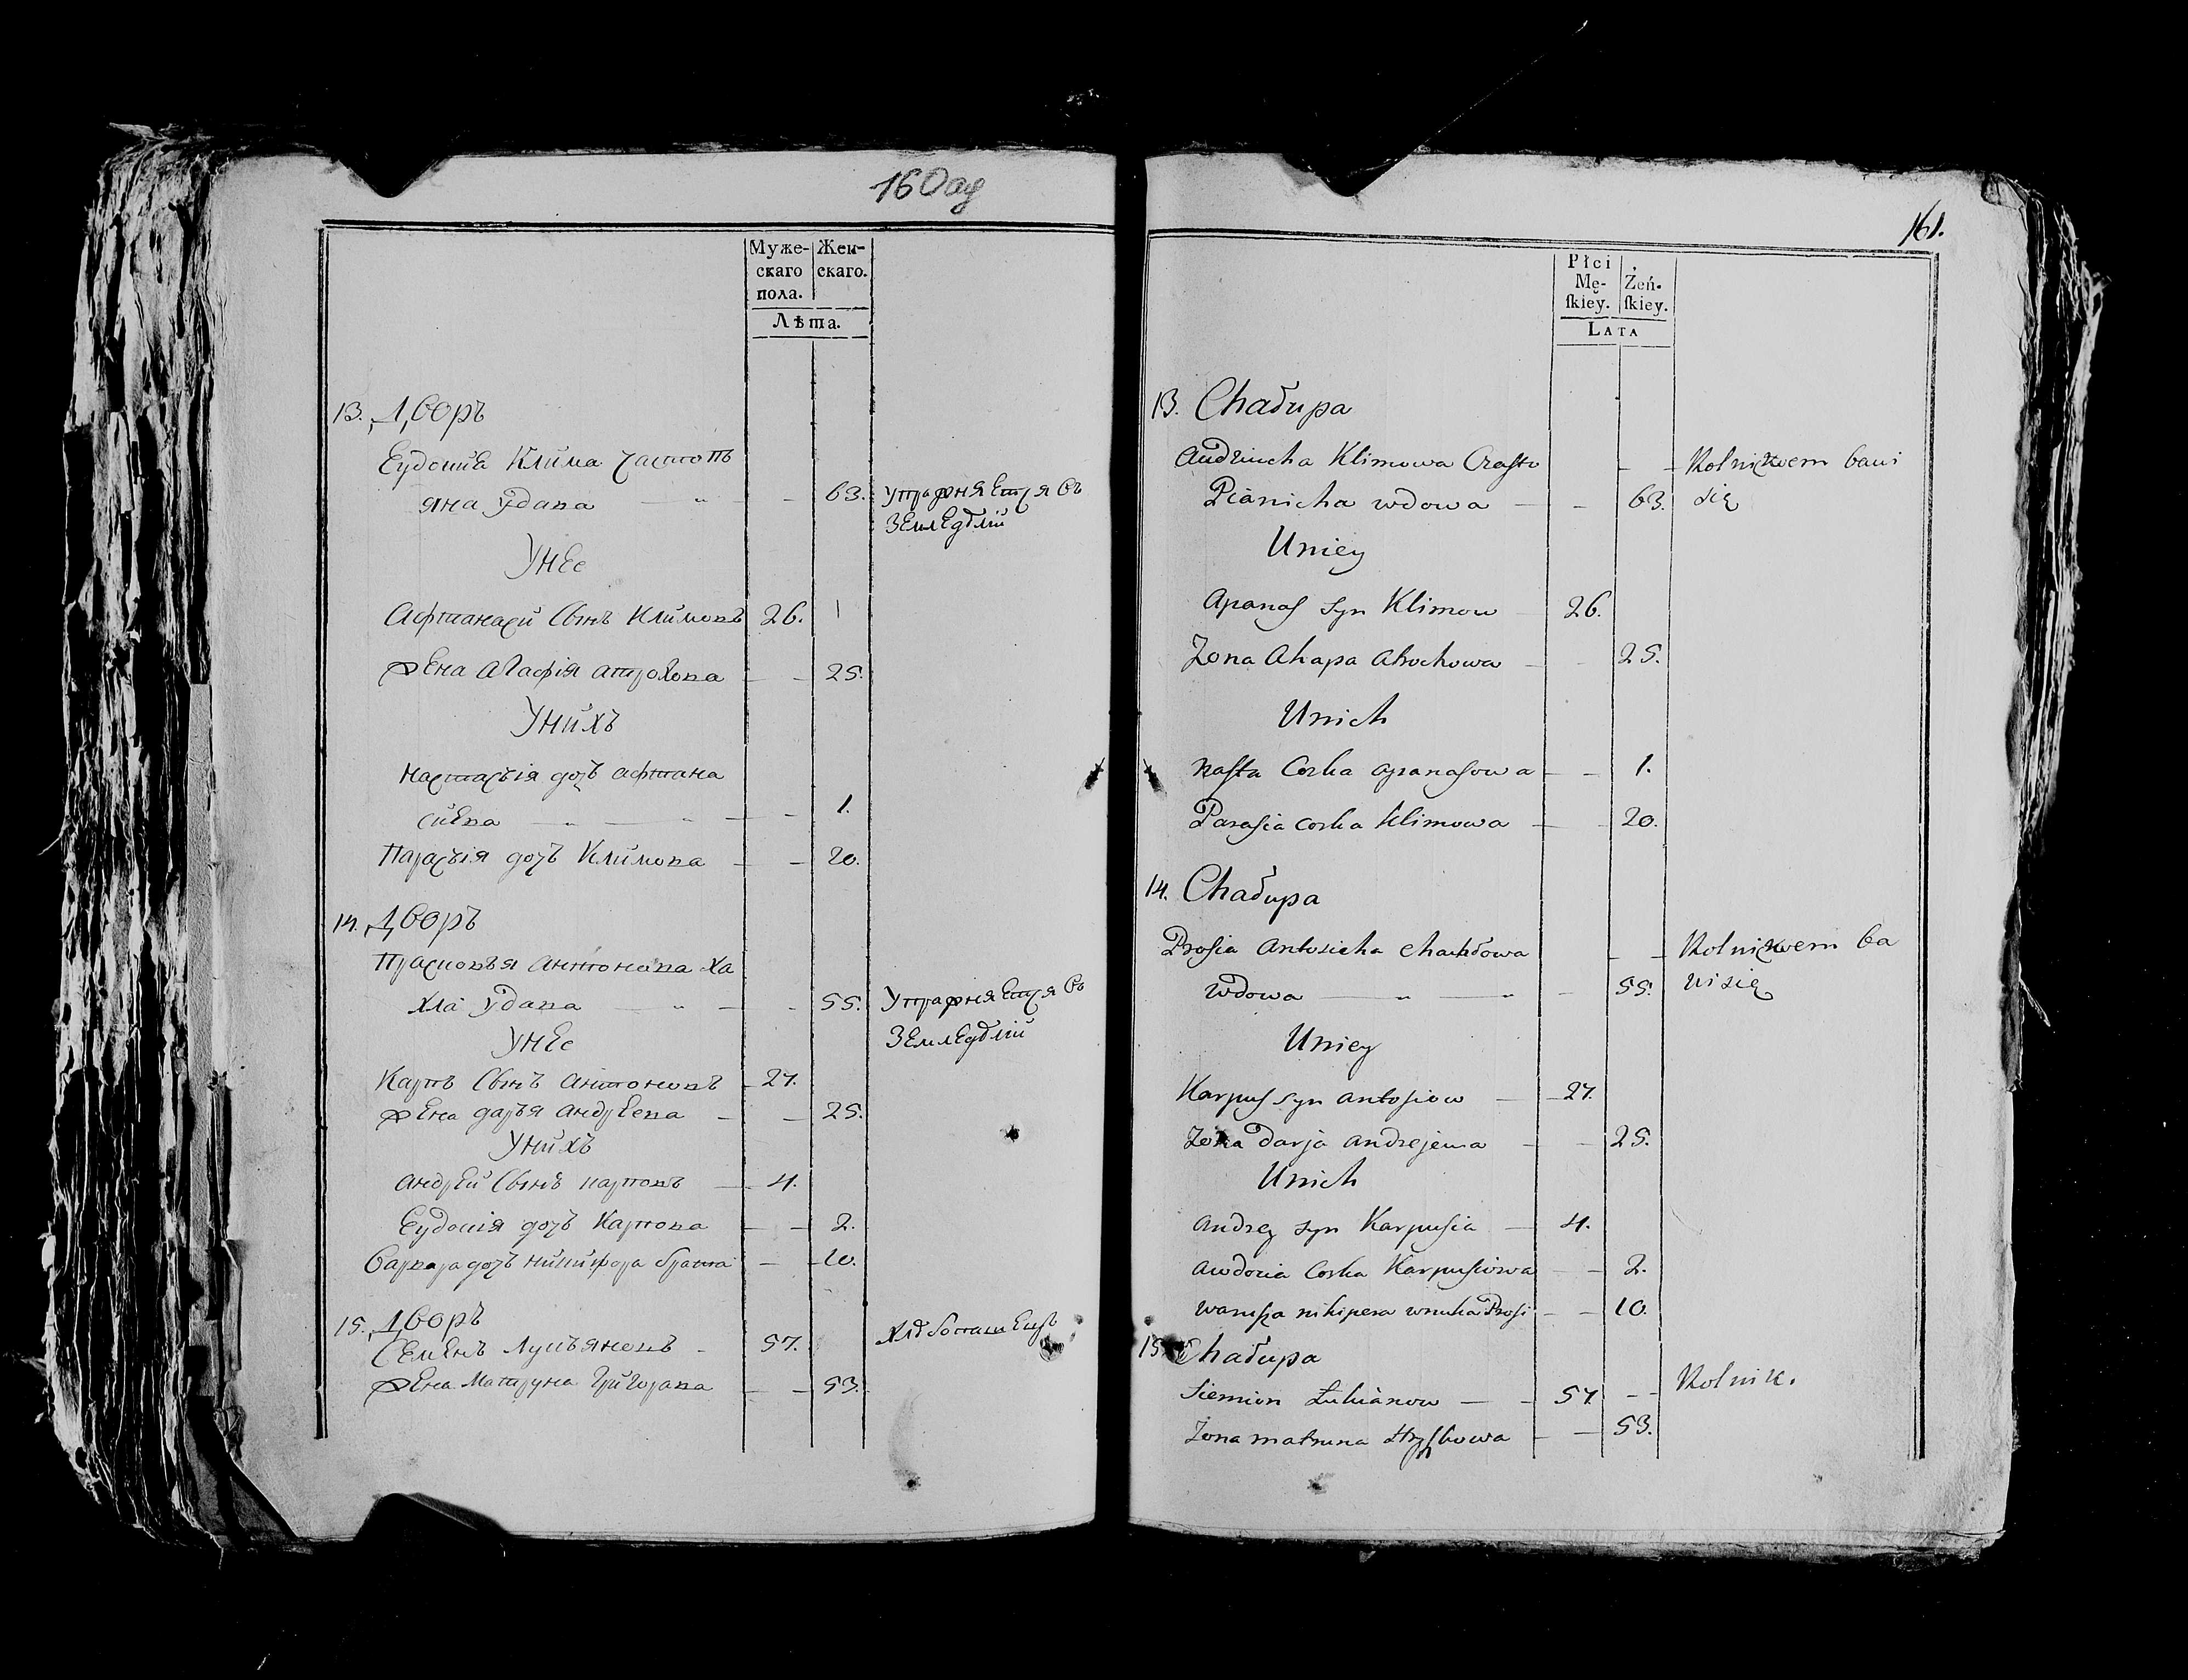 160 об
Муже-
скаго
пола.
Жен-
скаго.
Лѣта.
13. Дворъ
Еудокия Клима Частопъ
яна удава 63. Упражняется въ
земледѣлiи
У нее
Афтанасй Сынъ Климовъ 26.
жена Агафiя Атрохова 25.
У нихъ
Настасъiя дочъ Афтана
сиева 1.
Парасъiя дочъ Климова 20.
14. Дворъ
Прасковъя Антонова Ха
хла удава 55. Упражняется въ
земледѣлiи
У нее
Карпъ Сынъ Антоновъ 27.
жена даръя андреева 25.
У нихъ
андрей Сынъ карповъ 4.
Еудокiя дочъ Карпова 2.
Варвара дочъ никифора брата 10.
15. Дворъ
Семенъ Лукъяновъ 57. Хлѣбопашецъ
жена Матруна Григорава 53.
161.
Płci
Mę-
skiey.
Żeń-
skiey.
LATA
13. Chałupa
Klimowa Czasto Rolnictwem bawi
Pianicha wdowa 63. się
U niey
Apanas syn Klimow 26.
Zona Ahapa Atrochowa 25.
U nich
Nasta Corka Apanasowa 1.
Parasia corka Klimowa 20.
14. Chałupa
Prosia Antosicha Rolnictwem ba
wdowa 55. wi się
U niey
Karpus syn Antosiow 27.
Zona Darja Andrejewa 25.
U nich
Andrey syn Karpusia 4.
Awdocia Corka Karpusiowa 2.
Waruszka nikipera wnuka Prosi 10.
15. Chałupa
Siemion Łukianow 57. Rolnik.
Zona matruna 53.